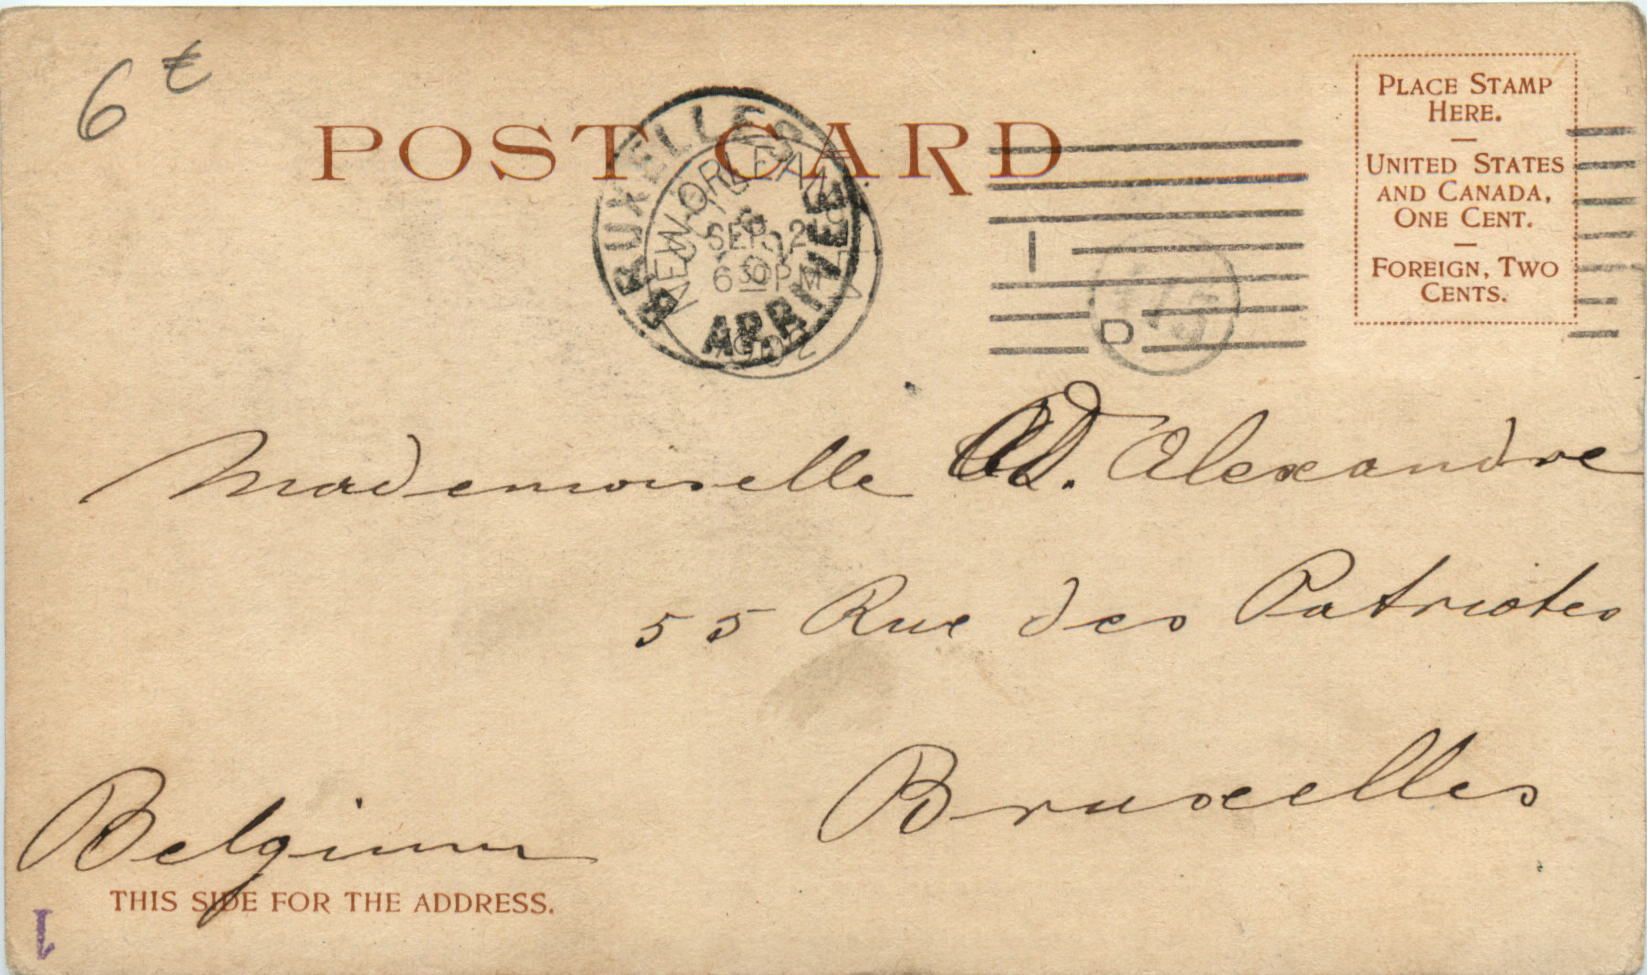 6 €
POST CARD
BRUXELLES
ARRIVÉE
NEW ORLEANS
SEP 2
6 30 PM
1902
1
D
PLACE STAMP
HERE.
—
UNITED STATES
AND CANADA,
ONE CENT.
—
FOREIGN, TWO
CENTS.
Mademoiselle Alexandre
55 Rue des Patriotes
Bruxelles
Belgium
THIS SIDE FOR THE ADDRESS.
1